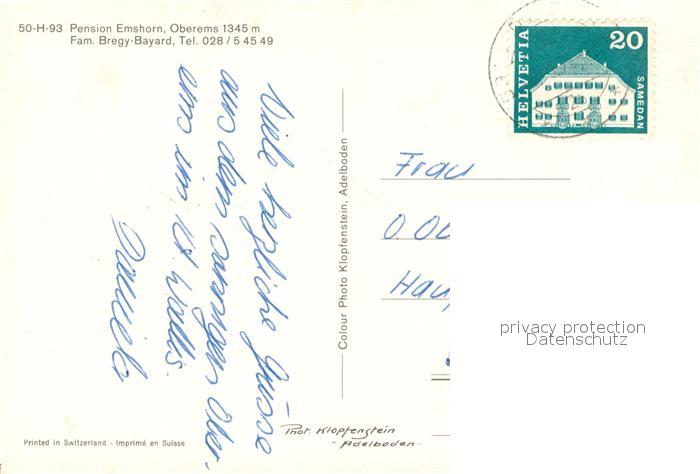 50-H-93 Pension Emshorn, Oberems 1345 m
Fam. Bregy-Bayard, Tel. 028 / 5 45 49
HELVETIA
20
SAMEDAN
Viele herzliche Grüsse
aus dem sonnigen Ober-
ems im Wallis.
Colour Photo Klopfenstein, Adelboden
Frau
Hau
privacy protection
Datenschutz
Phot. Klopfenstein
- Adelboden -
Printed in Switzerland - Imprimé en Suisse